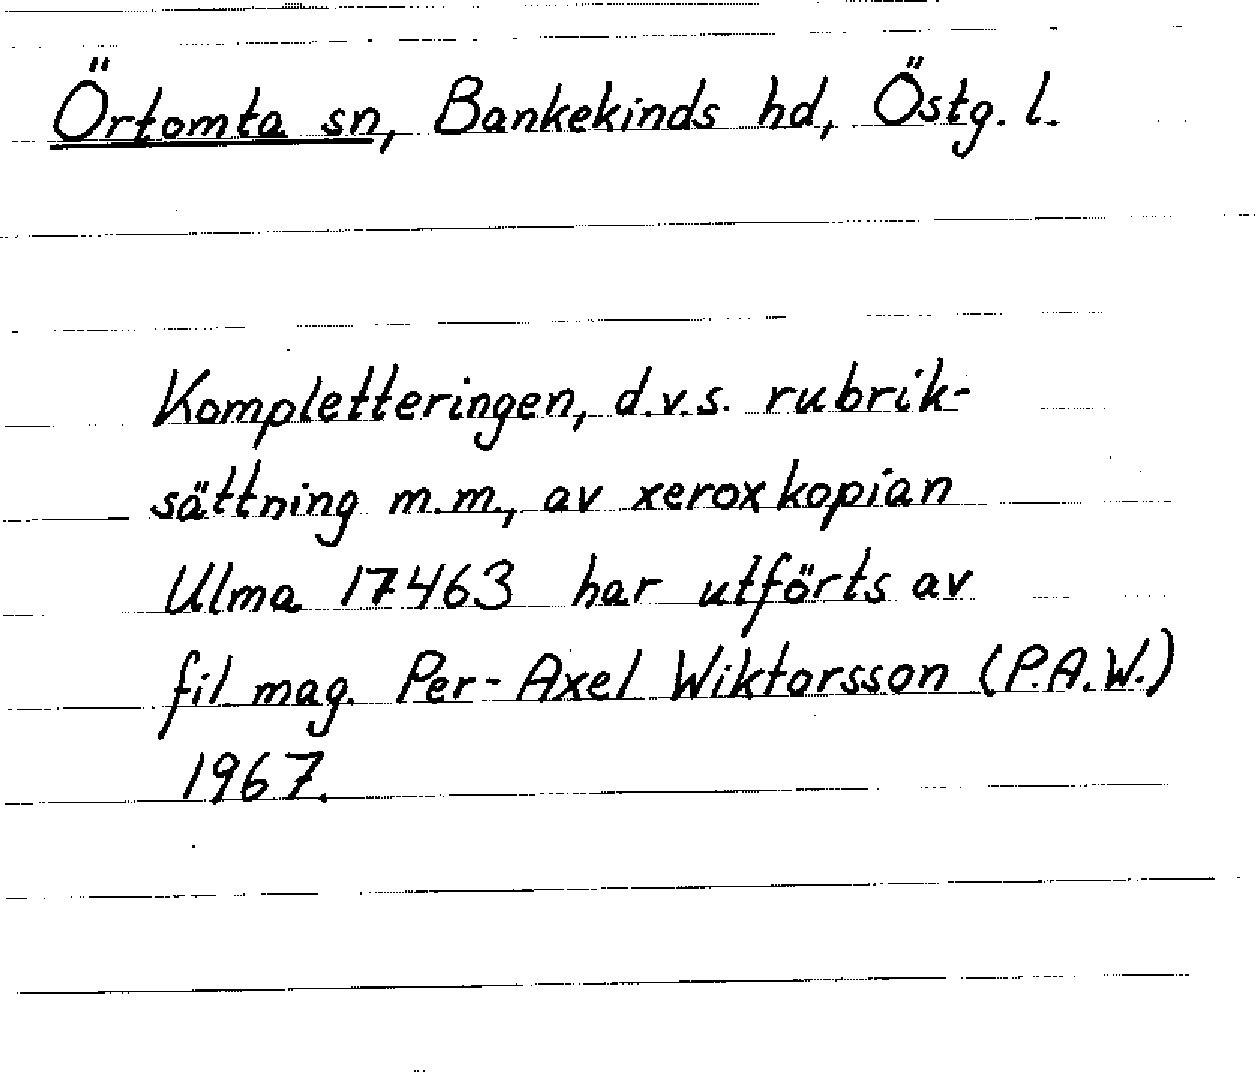 Örtomta sn, Bankekinds hd, Östg. l.
Kompletteringen, d.v.s. rubrik-
sättning m.m., av xeroxkopian
Ulma 17463 har utförts av
fil mag. Per-Axel Wiktorsson (P.A.W.)
1967.